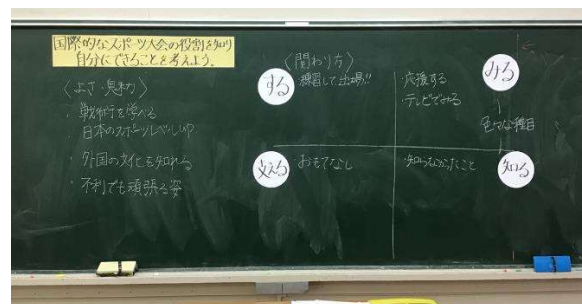 国際的なスポーツ大会の役割を知り
自分にできることを考えよう。
〈よさ・魅力〉
・戦術を学べる
日本のスポーツレベルUP
・外国の文化を知れる
・不利でも頑張る姿
〈関わり方〉
する
・練習して出場!!
みる
・応援する
・テレビでみる
色々な種目
支える
おもてなし
知る
・知らなかったこと